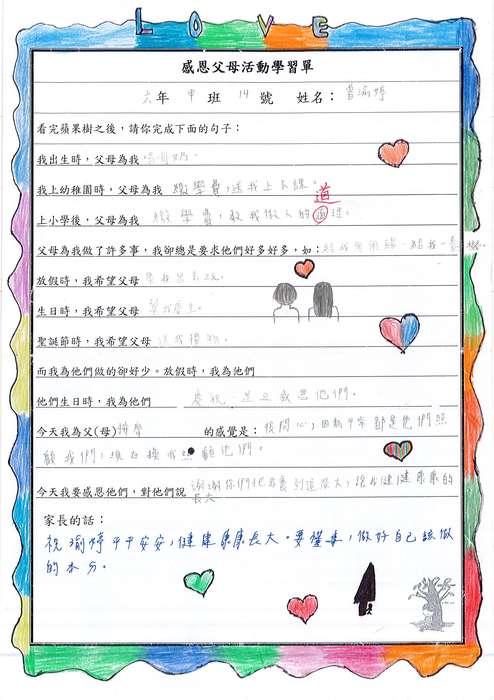 LOVE
感恩父母活動學習單
六年 甲 班 14 號 姓名：曾 婷
看完蘋果樹之後，請你完成下面的句子：
我出生時，父母為我
我上幼稚園時，父母為我 繳學費，送我上下課。
道
上小學後，父母為我 繳學費，教我做人的道理。
父母為我做了許多事，我卻總是要求他們好多好多，如：
放假時，我希望父母
生日時，我希望父母 幫我慶生。
聖誕節時，我希望父母 送我禮物。
而我為他們做的卻好少。放假時，我為他們
他們生日時，我為他們 慶祝 並且感恩他們。
今天我為父(母) 的感覺是：很開心，因為平常都是他們照
顧我們，換 我照顧他們。
今天我要感恩他們，對他們說 謝謝你們把我養到這麼大，讓我健健康康的
長大
家長的話：
祝 婷平平安安，健健康康長大。要 ，做好自己該做
的本分。